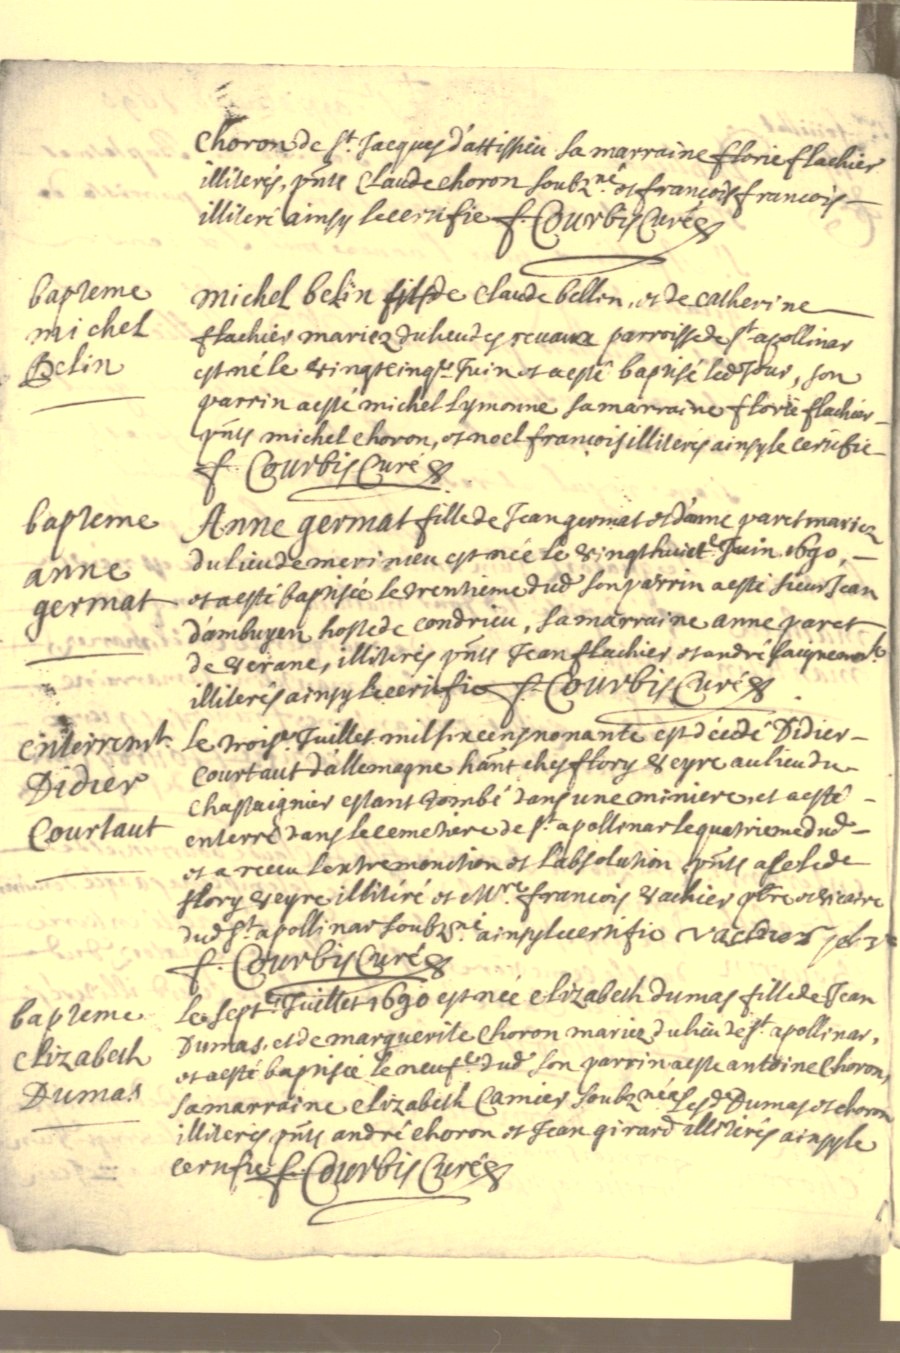 Choron de st Jacques d'attissieu sa marraine florie flachier
illiterés, pnts Claude choron soubzné et françois françois
illiteré ainsy le certifie f. Courbis Curé
bapteme
michel
Belin
Michel belin fils de Claude bellin, et de Catherine
flachier mariez du lieu des revaux parroisse de st apollinar
est né le vingt cinqe Juin et a esté baptisé led Jour, son
parrin a esté michel Lymonne sa marraine florie flachier
pnts michel choron, et noel françois illiterés ainsy le certifie
f. Courbis Curé
bapteme
anne
germat
Anne germat fille de Jean germat et d'anne paret mariez
du lieu de merinieu est née le vingt huicte Juin 1690,
et a esté baptisée le trentieme dud son parrin a esté sieur Jean
d'ambuyen hoste de condrieu, sa marraine anne paret
de verane, illiterés pnts Jean flachier et andré
illiterés ainsy le certifie f. Courbis Curé
enterremt
Didier
Courtaut
le troise Juillet mil six cens nonante est décédé Didier
Courtaut d'allemagne hant ches flory veyre au lieu du
Chastaignier estant tombé dans une miniere, et a esté
enterré dans le cemetiere de st apollinar le quatrieme dud
et a receu l'extremonction et l'absolution pnts a
flory veyre illitéré et Mre françois vachier pbre et vicaire
dud st apollinar soubzné ainsy le certifie vachier pbre
f. Courbis Curé
bapteme
Elizabeth
Dumas
le septe Juillet 1690 est née Elizabeth dumas fille de Jean
Dumas, et de marguerite Choron mariez du lieu de st apollinar,
et a esté baptisée le neufe dud son parrin a esté antoine Choron,
sa marraine elizabeth Camier soubznée Lesd Dumas et choron
illiterés pnts andré choron et Jean girard illiterés ainsy le
certifie f. Courbis Curé